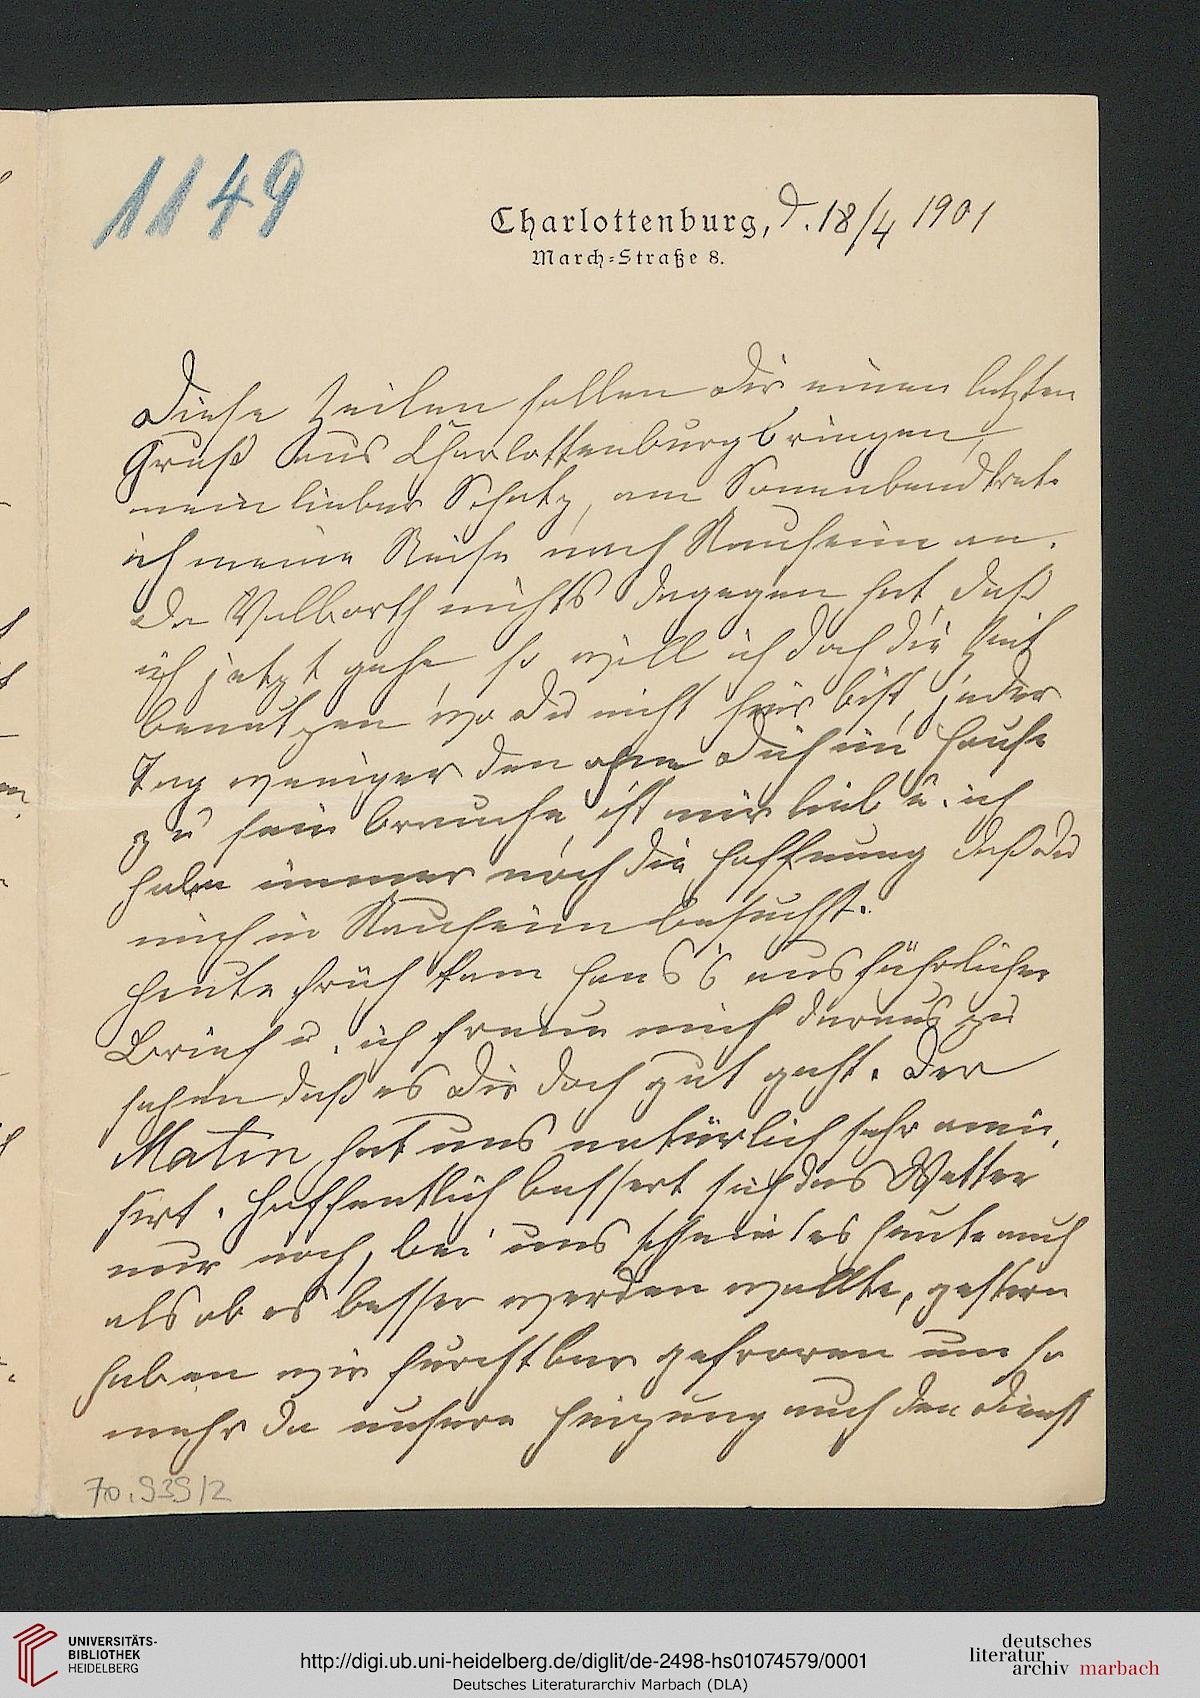 1149
Charlottenburg, d. 18/4 1901
March-Straße 8.
Diese Zeilen sollen Dir einen letzten
Gruß aus Charlottenburg bringen,
mein lieber Schatz, am Sonnabend trete
ich meine Reise nach Nauheim an.
Da Vollborth nichts dagegen hat, daß
ich jetzt gehe, so will ich doch die Zeit
benutzen wo Du nicht hier bist, jeder
Tag weniger den ohne Dich im Hause
zu sein brauche, ist mir lieb u. ich
habe immer noch die Hoffnung daß Du
mich in Nauheim besuchst.
Heute früh kam Hans's ausführlicher
Brief u. ich freue mich daraus zu
sehen daß es Dir doch gut geht. Der
Matin hat uns natürlich sehr amü-
sirt. Hoffentlich bessert sich das Wetter
nur noch, bei uns scheint es heute auch
als ob es besser werden wollte, gestern
haben wir furchtbar gefroren um so
mehr da unsere Heizung auch den Dienst
70.939/2
UNIVERSITÄTS-
BIBLIOTHEK
HEIDELBERG
http://digi.ub.uni-heidelberg.de/diglit/de-2498-hs01074579/0001
Deutsches Literaturarchiv Marbach (DLA)
deutsches
literatur
archiv marbach